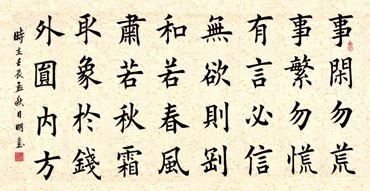 事閑勿荒
事繁勿慌
有言必信
無欲則剛
和若春風
肅若秋霜
取象於錢
外圓內方
時在壬辰孟秋日明